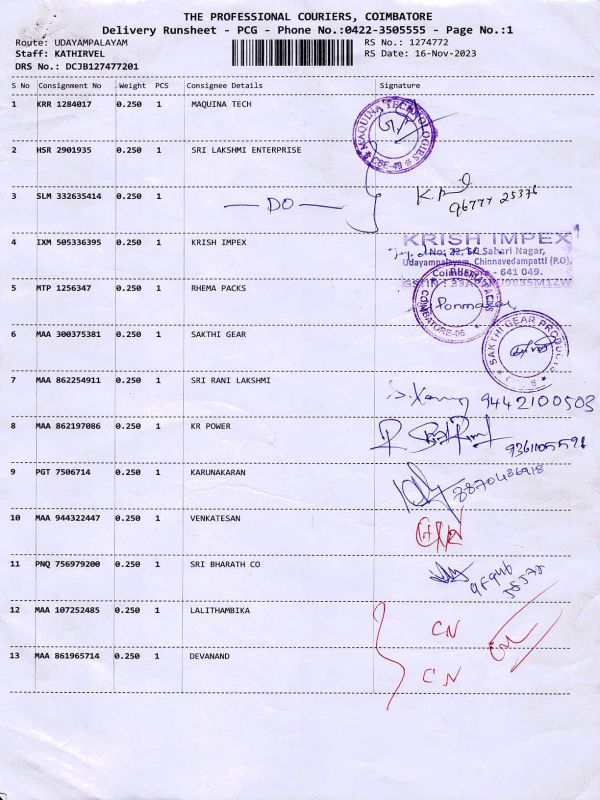 THE PROFESSIONAL COURIERS, COIMBATORE
Delivery Runsheet - PCG - Phone No.:0422-3505555 - Page No.:1
Route: UDAYAMPALAYAM
RS No.: 1274772
Staff: KATHIRVEL
RS Date: 16-Nov-2023
DRS No.: DCJB127477201
S No Consignment No Weight PCS Consignee Details Signature
1 KRR 1284017 0.250 1 MAQUINA TECH
MAQUINA TECHNOLOGIES
CBE-49
2 HSR 2901935 0.250 1 SRI LAKSHMI ENTERPRISE
3 SLM 332635414 0.250 1 — DO —
96777 25376
4 IXM 505336395 0.250 1 KRISH IMPEX
KRISH IMPEX
Udayampalayam, Chinnavedampatti (P.O),
Coimbatore - 641 049.
5 MTP 1256347 0.250 1 RHEMA PACKS
RHEMA PACKS
COIMBATORE-06
6 MAA 300375381 0.250 1 SAKTHI GEAR
SAKTHI GEAR PRODUCTS
7 MAA 862254911 0.250 1 SRI RANI LAKSHMI
9442100503
8 MAA 862197086 0.250 1 KR POWER
9 PGT 7506714 0.250 1 KARUNAKARAN
8870486918
10 MAA 944322447 0.250 1 VENKATESAN
11 PNQ 756979200 0.250 1 SRI BHARATH CO
12 MAA 107252485 0.250 1 LALITHAMBIKA
CN
13 MAA 861965714 0.250 1 DEVANAND
CN